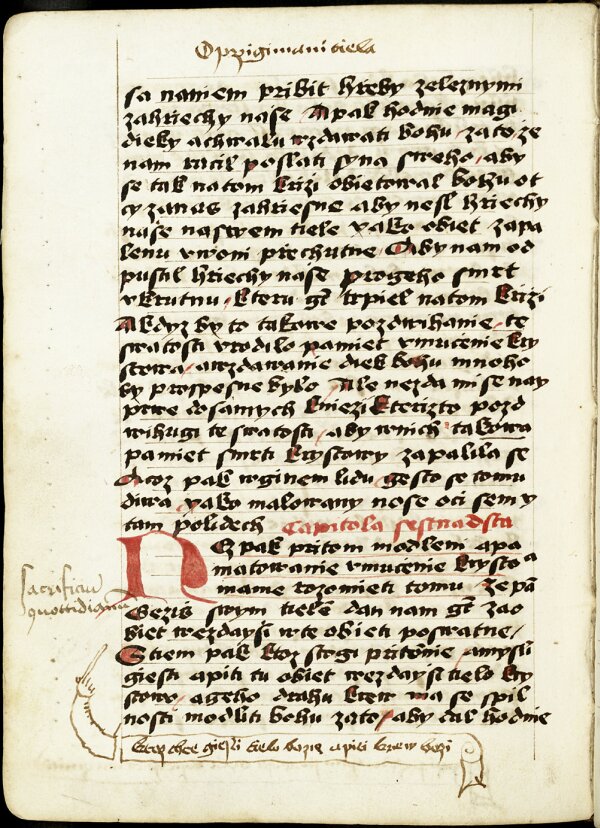 O przigimani tiela
sa naniem pribit hrzeby zeleznymi
zahriechy nasse A pak hodnie magi
dieky achwalu wzdawati bohu zatoze
nam racil poslati syna sweho aby
se tak natom krizi obietowal bohu ot
cy zanas zahriessne aby nesl hriechy
nasse naswem tiele yako obiet zapa
lenu vwoni przechutne Aby nam od
pustil hriechy nasse progeho smrt
vkrutnu kteru gt trpiel natom krizi
A kdyz by to takowe pozdwihanie te
swatosti vrodilo pamiet vmucenie kry
stowa awzdawanie diek bohu mnoho
by prospesne bylo Ale nezda mi se nay
prwe vsamych kniezi kterizto pozd
wihugi te swatosti aby wnich takowa
pamiet smrti krystowy zapalila se
A coz pak wginem lidu gesto se tomu
diwa yako malowany nose oci semy
tam polidech Capitola sestnadsta
Nez pak pritom modleni apa
matowanie vmucenie krysto a
mame rozomieti tomu ze pa
Gezis swym tielem dan nam gt zao
biet wezdaysi wte obieti poswatne
Stiem pak ktoz stogi pritomie amysli
giesti apiti tu obiet wezdaysi tielo kry
stowo ageho drahu krew ma se spil
nosti modliti bohu zato aby dal hodnie
sacrificiu
quottidianu
ktoz chce giesti tielo bozie apiti krew bozi